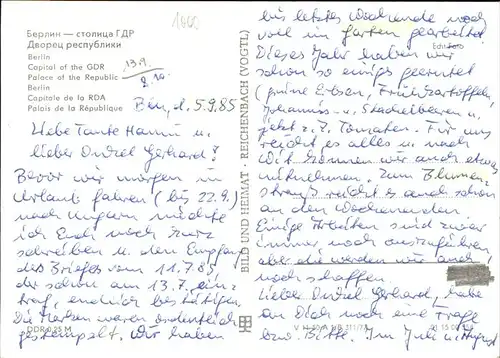 1600
Берлин — столица ГДР
Дворец республики
Berlin
Capital of the GDR
Palace of the Republic
Berlin
Capitale de la RDA
Palais de la République
13.9.
2.10.
Bln, d. 5.9.85
Liebe Tante Hanni u.
lieber Onkel Gerhard!
Bevor wir morgen in
Urlaub fahren (bis 22.9.)
nach Ungarn möchte
ich Euch noch kurz
schreiben u. den Empfang
des Briefes vom 11.7.85,
der schon am 13.7. ein-
traf, endlich bestätigen.
Die Marken waren ordentlich
gestempelt. Wir haben
DDR 0,25 M
BILD UND HEIMAT · REICHENBACH (VOGTL)
bis letztes Wochenende noch
voll im Garten gearbeitet.
Echt Foto
Dieses Jahr haben wir
schon so einiges geerntet
(grüne Erbsen, Frühkartoffeln,
Johannis- u. Stachelbeeren u.
jetzt z.Z. Tomaten. Für uns
reicht es alles u. nach
können wir auch etwas
mitnehmen. Zum Blumen-
strauß reicht es auch schon
an den Wochenenden.
Einige Arbeiten sind zwar
immer noch auszuführen
aber die werden wir auch
noch schaffen.
Lieber Onkel Gerhard, habe
an Dich noch eine Frage
bzw. Bitte. Im Juli u. August